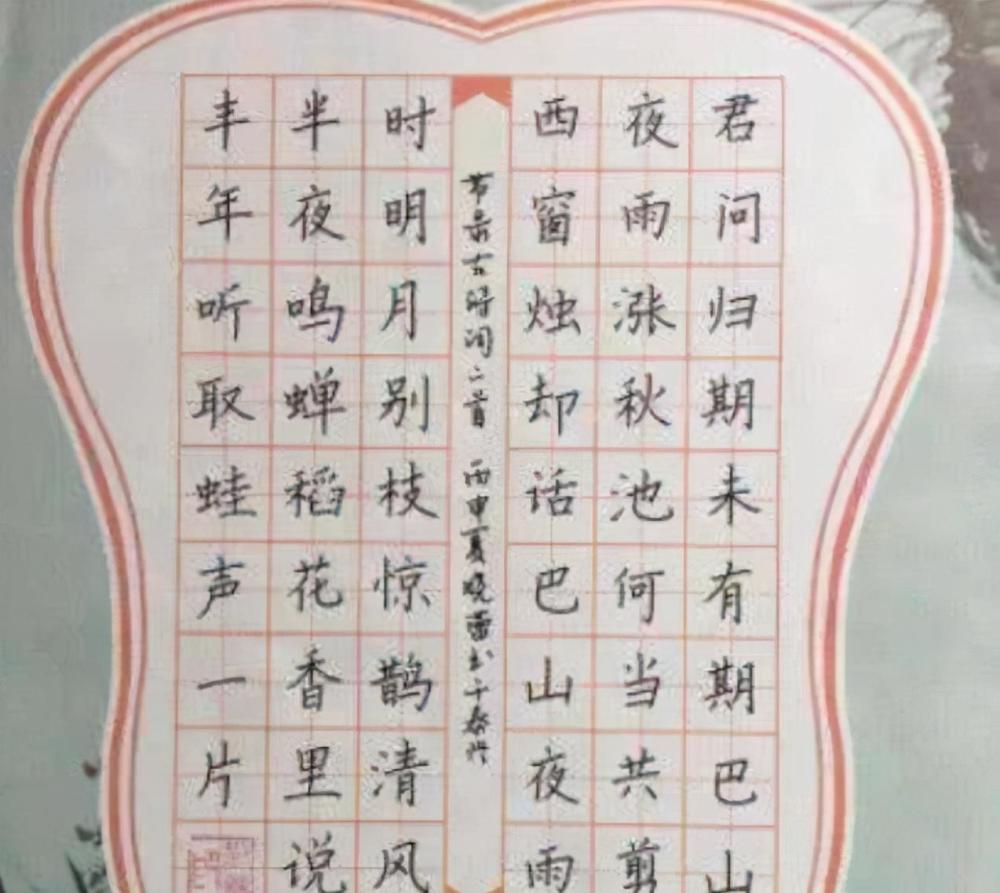 君问归期未有期巴山
夜雨涨秋池何当共剪
西窗烛却话巴山夜雨
节录古诗词二首 丙申夏晓蕾书于泰兴
时明月别枝惊鹊清风
半夜鸣蝉稻花香里说
丰年听取蛙声一片